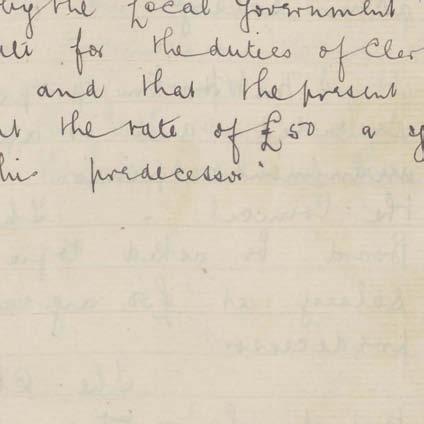 by the Local Government
for the duties of Cler
and that the present
at the rate of £50 a y
his predecessor